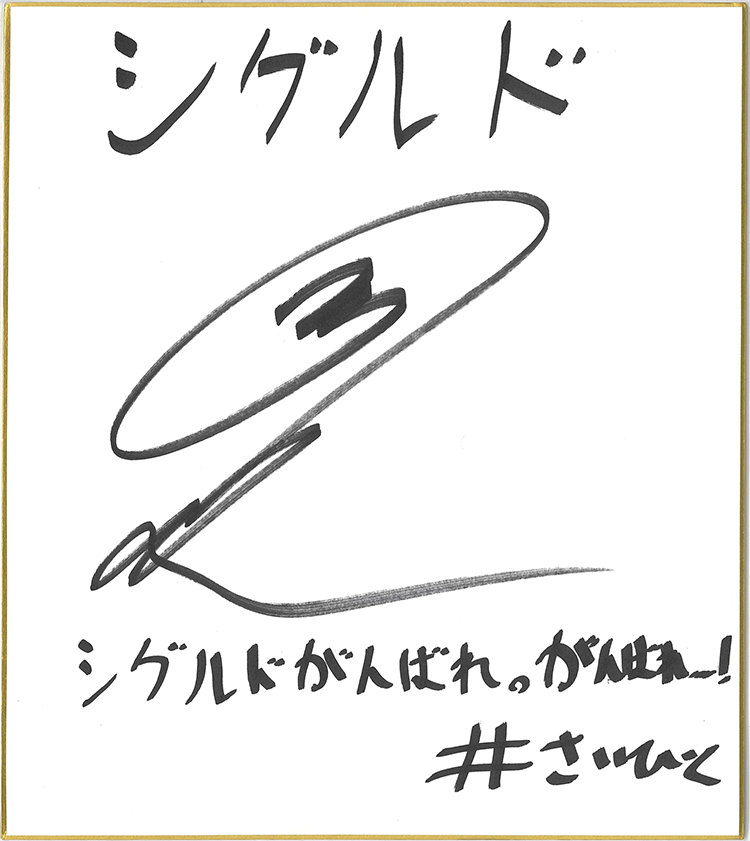 シグルド
シグルドがんばれ。がんばれー!
#さいひと